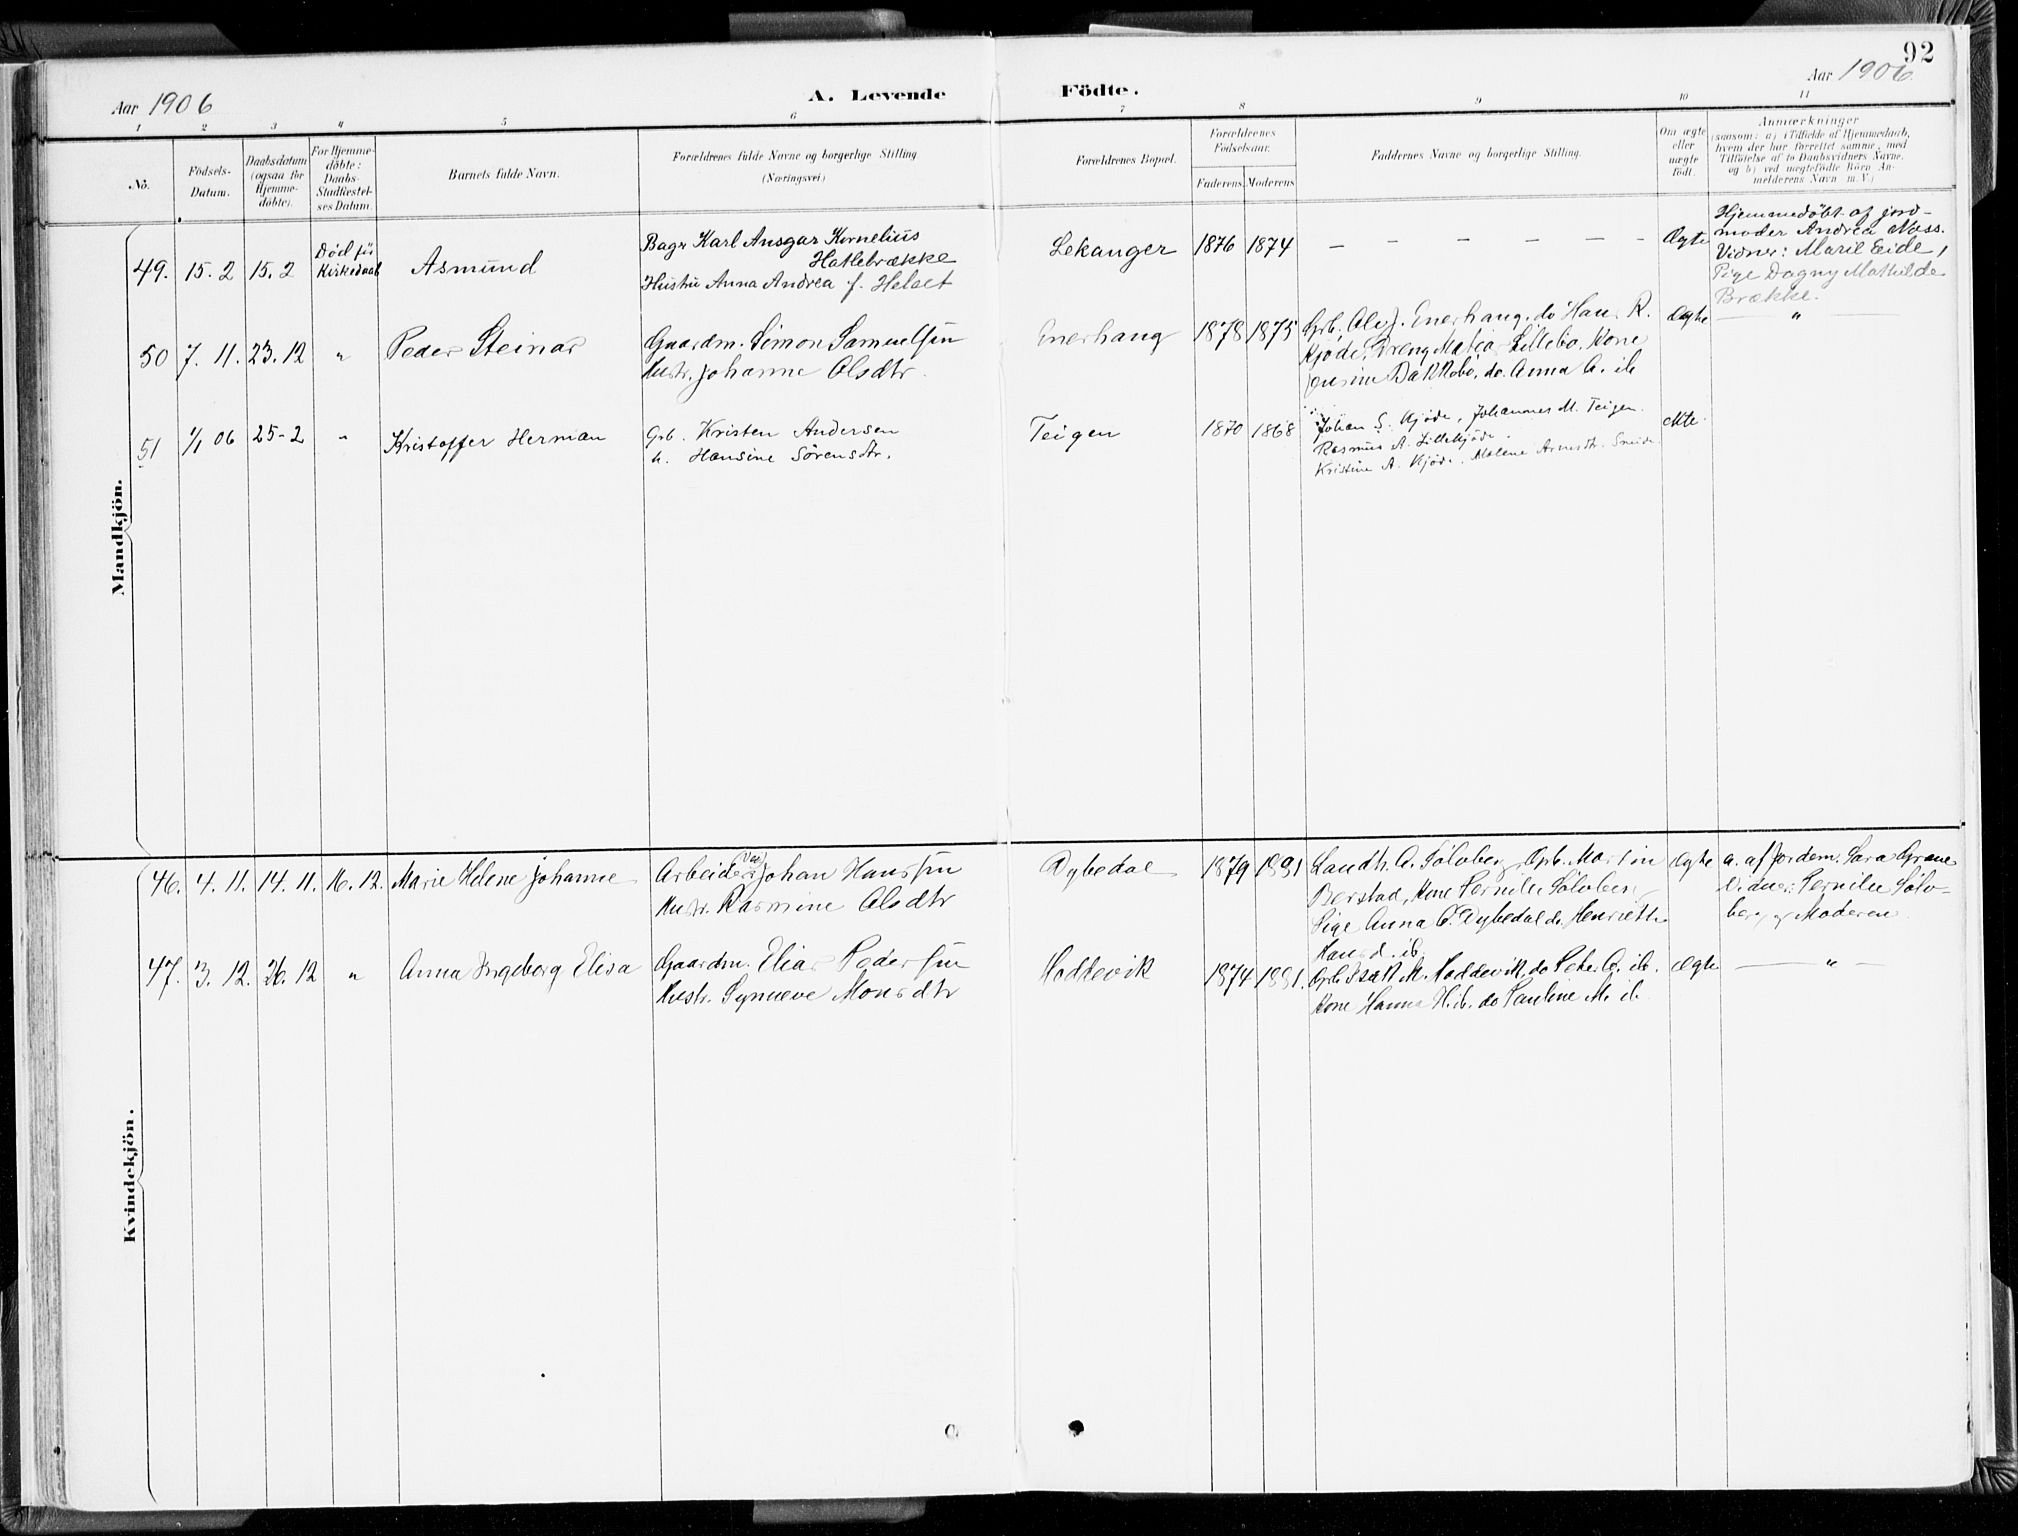 92
Aar 1906
A. Levende Födte.
Aar 1906
1 2 3 4 5 6 7 8 9 10 11
No.
Födsels-Datum.
Daabsdatum (ogsaa for Hjemme-döbte).
For Hjemme-döbte: Daabs-Stadfæstel-ses Datum.
Barnets fulde Navn.
Forældrenes fulde Navne og borgerlige Stilling (Næringsvei)
Forældrenes Bopæl.
Forældrenes Fødselsaar.
Faderens Moderens
Faddernes Navne og borgerlige Stilling.
Om ægte eller uægte födt.
Anmærkninger
(saasom: a) i Tilfælde af Hjemmedaab,
hvem der har forrettet samme, med
Tilföielse af to Daabsvidners Navne.
og b) ved uægtefödte Börn An-
melderens Navn m. V.)
Mandkjön.
49. 15. 2 15. 2 Död fü Kirkedaab Asmund
Bagr Karl Ansgar Kornelius
Hatlebrække
Hustru Anna Andrea f. Helset
Lekanger 1876 1874 — — — — — — Ægte
Hjemmedöbt af jord-
moder Andrea Næss.
Vidner: Maril Eide,
Pige Dagny Mathilde
Brække.
50 7. 11. 23. 12 " Peder Steinar
Gaardm. Simon Samuelsen
Hustr. Johanne Olsdtr.
Enerhaug 1878 1875
Grb. Ole J. Enerhaug. do Hans R.
Kjøde, Dreng Matias Lillebö. Kone
Jensine Bakkebö, do. Anna A. ib
Ægte — " —
51 1/1 06 25-2 " Kristoffer Herman
Grb. Kristen Andersen
h. Hansine Sörensdtr.
Teigen 1870 1868
Johan S. Kjøde, Johannes M. Teigen.
Rasmus A. Lillekjøde.
Kristine A. Kjøde. Malene Arnesdtr.
ekte.
Kvindekjön.
46. 4. 11. 14. 11. 16. 12. Marie Helene Johanne
Arbeider Johan Hanssen
Hustr. Rasmine Olsdtr
Dybedal 1879 1881
Landh. A. Sölvberg, Grb. Martin
Berstad, Kone Pernille Sölvberg
Pige Anna O. Dybedal do. Henriette
Hansd. ib.
Ægte
a. af Jordem. Sara Grane
Vidner: Pernille Sölv-
berg og Moderen
47. 3. 12. 26. 12 " Anna Ingeborg Elisa
Gaardm. Elias Pedersen
Hustr. Synneve Monsdtr
Hoddevik 1874 1881.
Grb. Isak M. Hoddevik, do Peter A. ib.
Kone Hanna H. ib. do Pauline M. ib.
Ægte — " —